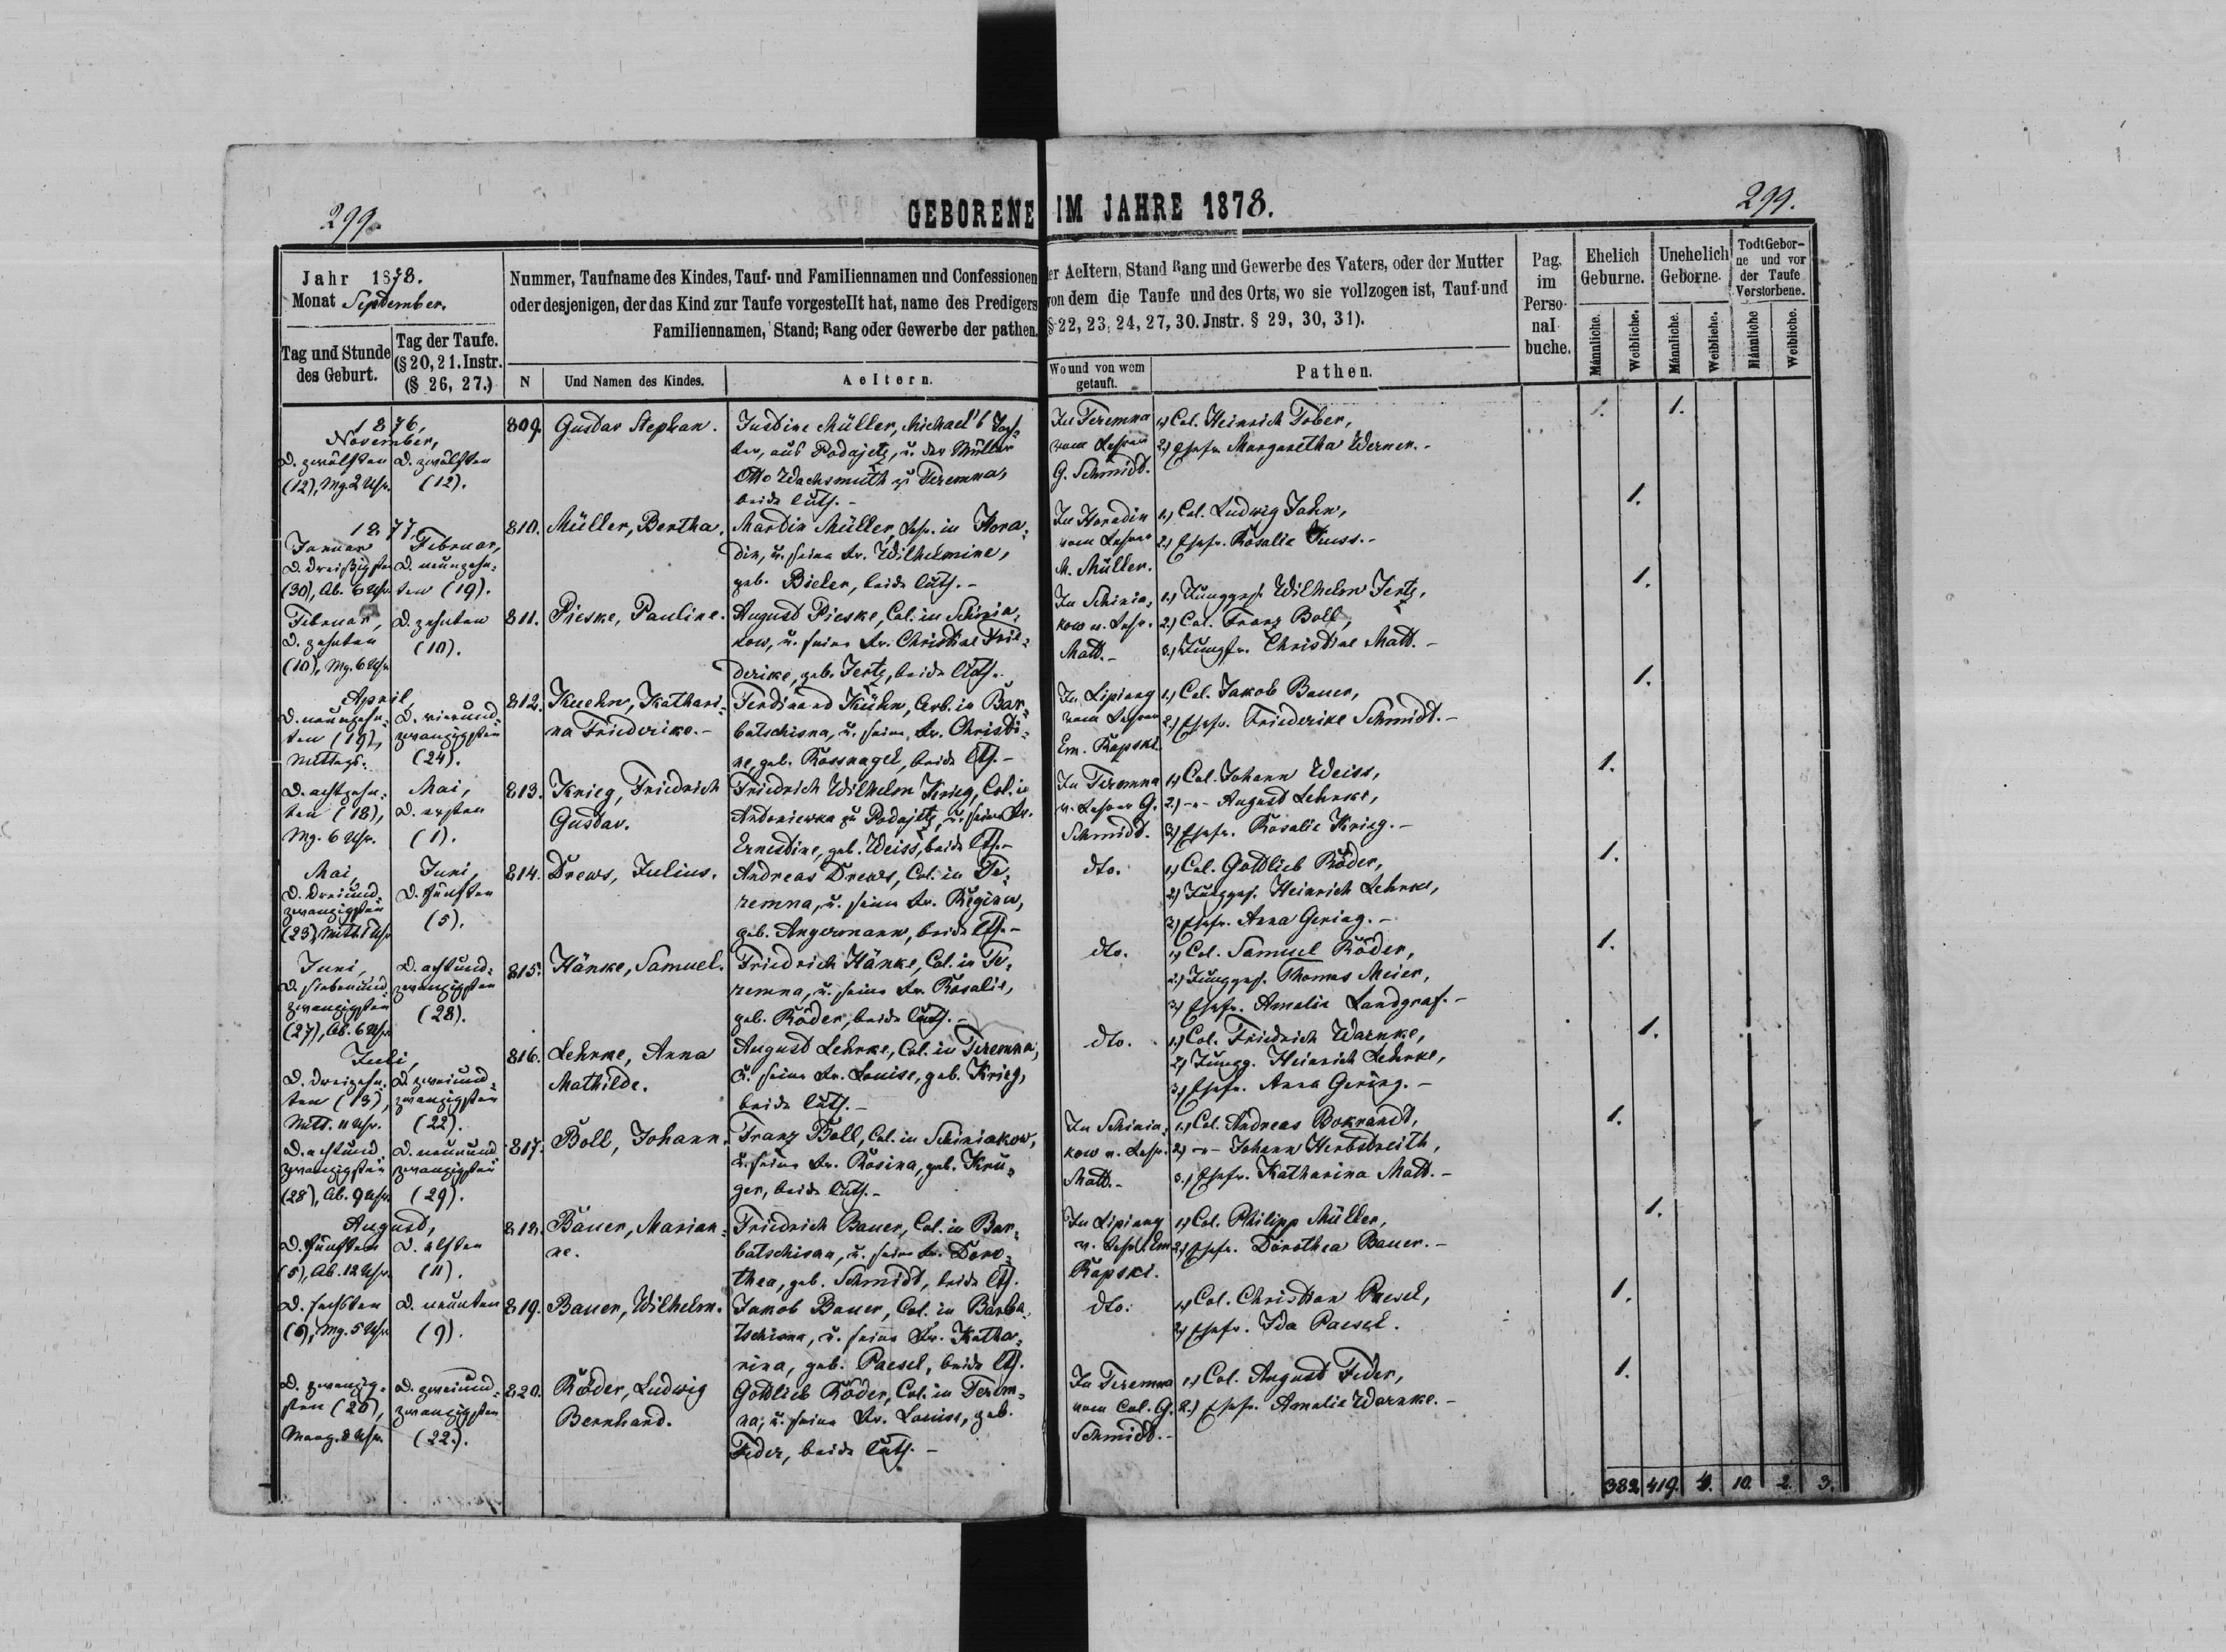 299.
GEBORENE IM JAHRE 1878.
299.
Jahr 1878.
Monat September.
Tag und Stunde
des Geburt.
Tag der Taufe.
(§ 20, 21. Instr.
(§ 26, 27.)
Nummer, Taufname des Kindes, Tauf- und Familiennamen und Confessionen
oder desjenigen, der das Kind zur Taufe vorgestellt hat, name des Predigers
Familiennamen, Stand; Rang oder Gewerbe der pathen.
N
Und Namen des Kindes.
Aeltern.
er Aeltern, Stand Rang und Gewerbe des Vaters, oder der Mutter
von dem die Taufe und des Orts, wo sie vollzogen ist, Tauf-und
§ 22, 23, 24, 27, 30. Jnstr. § 29, 30, 31).
Wo und von wem
getauft.
Pathen.
Pag.
im
Perso-
nal
buche.
Ehelich
Geburne.
Unehelich
Geborne.
Todt Gebor-
ne und vor
der Taufe
Verstorbene.
Männliche.
Weibliche.
Männliche.
Weibliche.
Männliche
Weibliche.
1876,
November,
D. zwölften
(12), Mg. 2 Uhr.
D. zwölften
(12).
809.
Gustav Stephan.
Justine Müller, Michael's Toch-
ter, aus Podajetz, u. der Müller
Otto Wachsmuth zu Teremna,
beide luth. -
In Teremna
vom Lehrer
G. Schmidt.
1.) Col. Heinrich Tober,
2.) Ehefr. Margaretha Werner. -
1. 1.
1877.
Januar
D. dreißigsten
(30), Ab. 6 Uhr.
Februar,
D. neunzehn-
ten (19).
810.
Müller, Bertha.
Martin Müller, Lehr. in Hora-
din, u. seine Fr. Wilhelmine,
geb. Bieler, beide luth. -
In Horadin
vom Lehrer
M. Müller.
1.) Col. Ludwig Jahn,
2.) Ehefr. Rosalie -
1.
Februar,
D. zehnten
(10), Mg. 6 Uhr
D. zehnten
(10).
811.
Pieske, Pauline.
August Pieske, Col. in Schinia-
kow, u. seine Fr. Christine Frie-
derike, geb. Jertz, beide luth.
In Schinia-
kow v. Lehr.
Matt. -
1.) Jungges. Wilhelm Jertz,
2.) Col. Franz Boll,
3.) Jungfr. Christine Matt. -
1.
April,
D. neunzehn-
ten (19),
Mittags.
D. vierund-
zwanzigsten
(24).
812.
Kuehn, Kathari-
na Friederike. -
Ferdinand Kühn, Arb. in Bar-
batschisna, u. seine Fr. Christi-
ne, geb. Rossnagel, beide lth. -
In Lipiany
vom Lehrer
Em. Rapski.
1.) Col. Jakob Bauer,
2.) Ehefr. Friederike Schmidt. -
1.
D. achtzehn-
ten (18),
Mg. 6 Uhr.
Mai,
D. ersten
(1).
813.
Krieg, Friedrich
Gustav.
Friedrich Wilhelm Krieg, Col. in
Antoniewka zu Podajetz, u. seine Fr.
Ernestine, geb. Weiss, beide lth. -
In Teremna
v. Lehrer G.
Schmidt.
1.) Col. Johann Weiss,
2.) -"- August Lehnke,
3.) Ehefr. Rosalie Krieg. -
1.
Mai,
D. dreiund-
zwanzigsten
(23), Mitt. 1 Uhr
Juni,
D. fünften
(5).
814.
Drews, Julius.
Andreas Drews, Col. in Te-
remna, u. seine Fr. Regine,
geb. Angermann, beide lth. -
dto.
1.) Col. Gottlieb Röder,
2.) Junggs. Heinrich Lehnke,
3.) Ehefr. Anna Gering. -
1.
Juni,
D. siebenund-
zwanzigsten
(27), Ab. 6 Uhr
D. achtund-
zwanzigsten
(28).
815.
Hänke, Samuel.
Friedrich Hänke, Col. in Te-
remna, u. seine Fr. Rosalie,
geb. Röder, beide luth. -
dto.
1.) Col. Samuel Röder,
2.) Junggs. Thomas Meier,
3.) Ehefr. Amalie Landgraf. -
1.
Juli,
D. dreizehn-
ten (13),
Mitt. 11 Uhr.
D. zweiund-
zwanzigsten
(22).
816.
Lehnke, Anna
Mathilde.
August Lehnke, Col. in Teremna,
u. seine Fr. Louise, geb. Krieg,
beide luth. -
dto.
1.) Col. Friedrich Warnke,
2.) Jungg. Heinrich Lehnke,
3.) Ehefr. Anna Gering. -
1.
D. achtund-
zwanzigsten
(28), Ab. 9 Uhr.
D. neunund-
zwanzigsten
(29).
817.
Boll, Johann.
Franz Boll, Col. in Schiniakow,
u. seine Fr. Rosina, geb. Krü-
ger, beide luth. -
In Schinia-
kow v. Lehr.
Matt. -
1.) Col. Andreas Bokrandt,
2.) -"- Johann Herbstreith,
3.) Ehefr. Katharina Matt. -
1.
August,
D. fünften
(5), Ab. 12 Uhr.
D. elften
(11).
818.
Bauer, Marian-
ne.
Friedrich Bauer, Col. in Bar-
batschisna, u. seine Fr. Doro-
thea, geb. Schmidt, beide lth.
In Lipiany
v. Lehr. Em
Rapski.
1.) Col. Philipp Müller,
2.) Ehefr. Dorothea Bauer. -
1.
D. sechsten
(6), Mg. 5 Uhr
D. neunten
(9).
819.
Bauer, Wilhelm.
Jakob Bauer, Col. in Barba-
tschisna, u. seine Fr. Katha-
rina, geb. Paesel, beide lth.
dto.
1.) Col. Christian Paesel,
2.) Ehefr. Ida Paesel.
1.
D. zwanzig-
sten (20),
Morg. 8 Uhr.
D. zweiund-
zwanzigsten
(22.).
820.
Röder, Ludwig
Bernhard.
Gottlieb Röder, Col. in Terem-
na, u. seine Fr. Louise, geb.
Feder, beide luth. -
In Teremna
vom Col. G.
Schmidt. -
1.) Col. August Feder,
2.) Ehefr. Amalie Warnke. -
1.
382. 419. 4. 10. 2. 3.